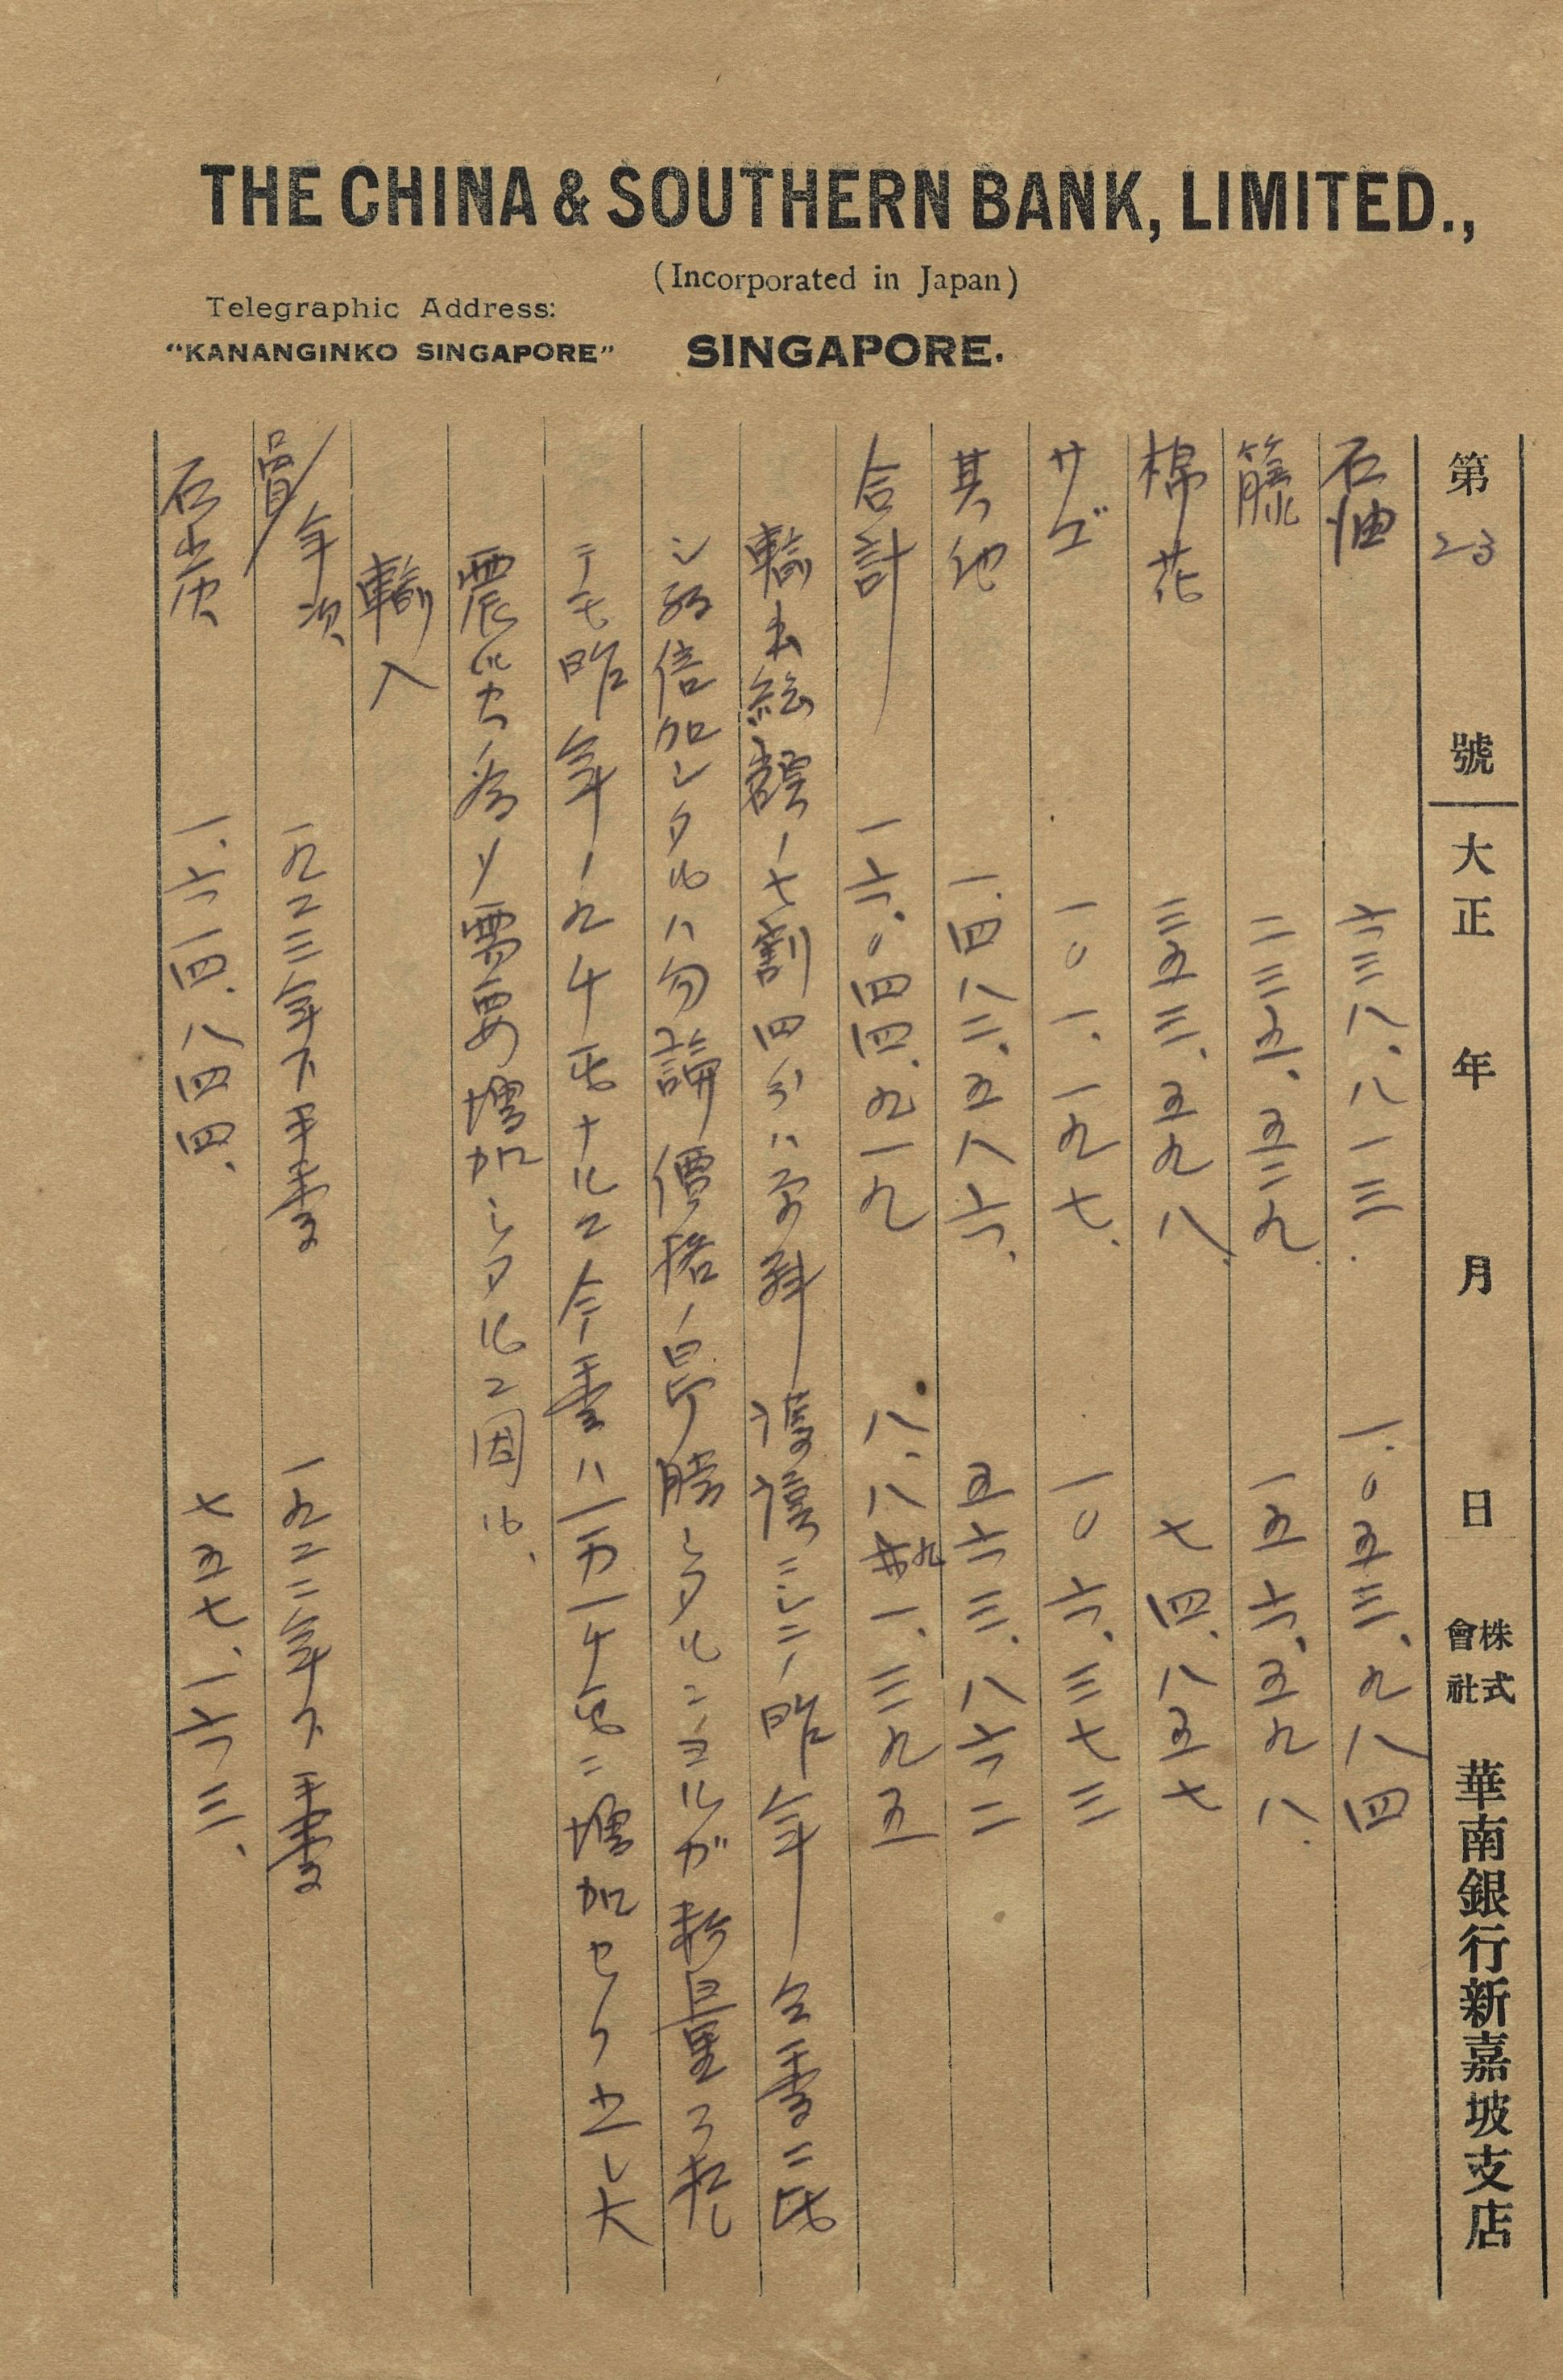 THE CHINA & SOUTHERN BANK, LIMITED.,
(Incorporated in Japan)
Telegraphic Address:
"KANANGINKO SINGAPORE"
SINGAPORE.
第 23 號 大正 年 月 日 株式會社 華南銀行新嘉坡支店
石油 六三八、八一三. 一.〇五三、九八四
籐 二三五、五二九. 一五六、五九八.
棉花 三五三、五九八. 七四、八五七
サゴ 一〇一、一九七. 一〇六、三七三
其他 一.四八二、五八六、 五六三、八六二
合計 一六.〇四四、九一九 八、八九一、三九五
輸出総額ノ七割四分ハ 護謨ニシテ昨年 今季ニ比
シ 倍加シタルハ勿論價格ノ昂騰シタルニヨルガ数量ヨリ
テモ昨年ノ九千屯ナルニ今季ハ一万一千屯ニ増加セリ之レ大
震災 為メ需要増加シタルニ因ル、
輸入
品目/年次 一九二三年下半季 一九二二年下半季
石炭 一、六一四、八四四、 七五七、一六三、